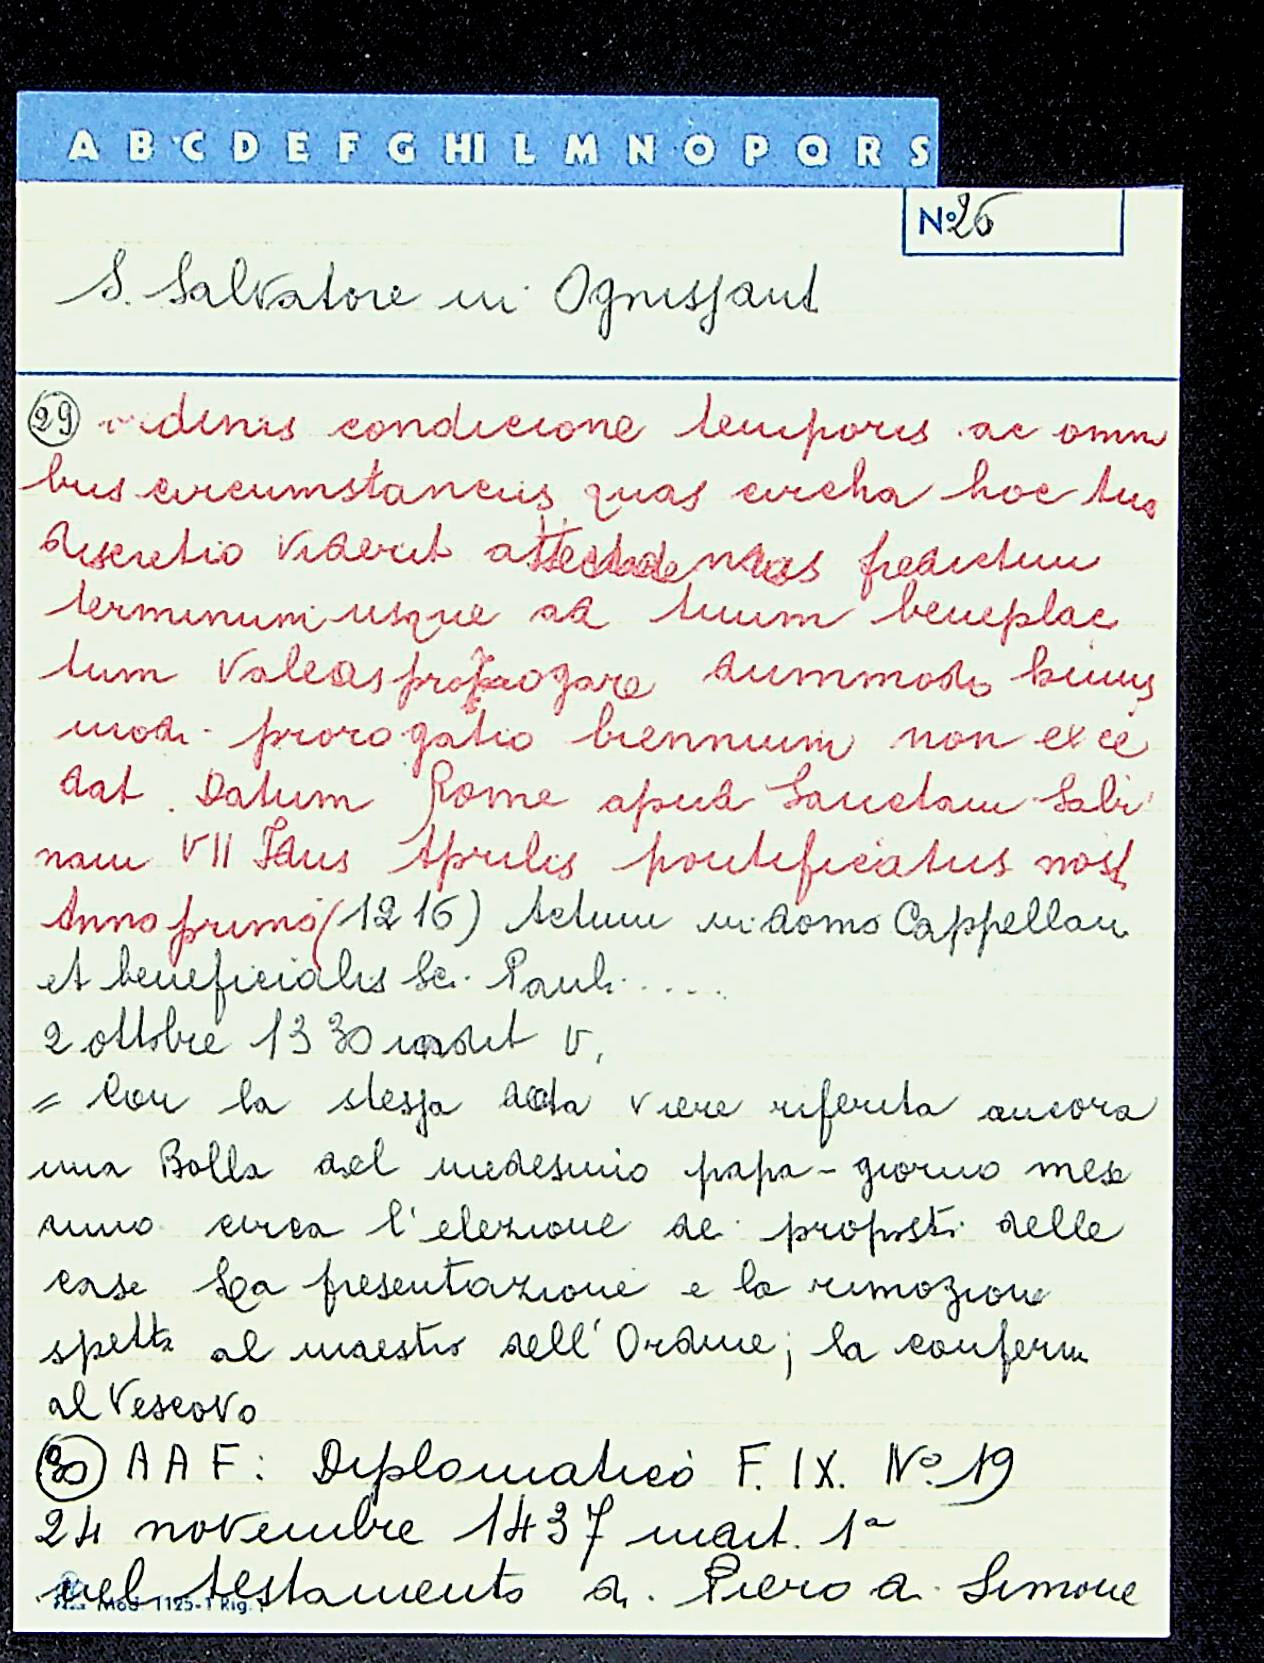 A B C D E F G HI L M N O P Q R S
Nº 26
S. Salvatore in Ognissant
29 ordinis condicione temporis ac omni
bus circumstanciis quas circha hoc tua
discretio viderit predictum
terminum usque ad tuum beneplaci
tum valeas prorogare dummodo huius
modi prorogatio biennium non exce
dat. Datum Rome apud Sanctam Sabi
nam VII Idus Aprilis pontificatus nost
Anno primo (1216) Actum in domo Cappellan
et beneficialis Sci. Pauli.....
2 ottobre 1330 indit V.
= Con la stessa data viene riferita ancora
una Bolla del medesimo papa - giorno mese
anno circa l'elezione dei proposti delle
case La presentazione e la rimozione
spetta al maestro dell'Ordine; la conferma
al Vescovo
30 A A F: Diplomatico F. IX. Nº 19
24 novembre 1437 mart. 1ª
nel testamento di Piero di Simone
Mod. 1125-1 Rig.